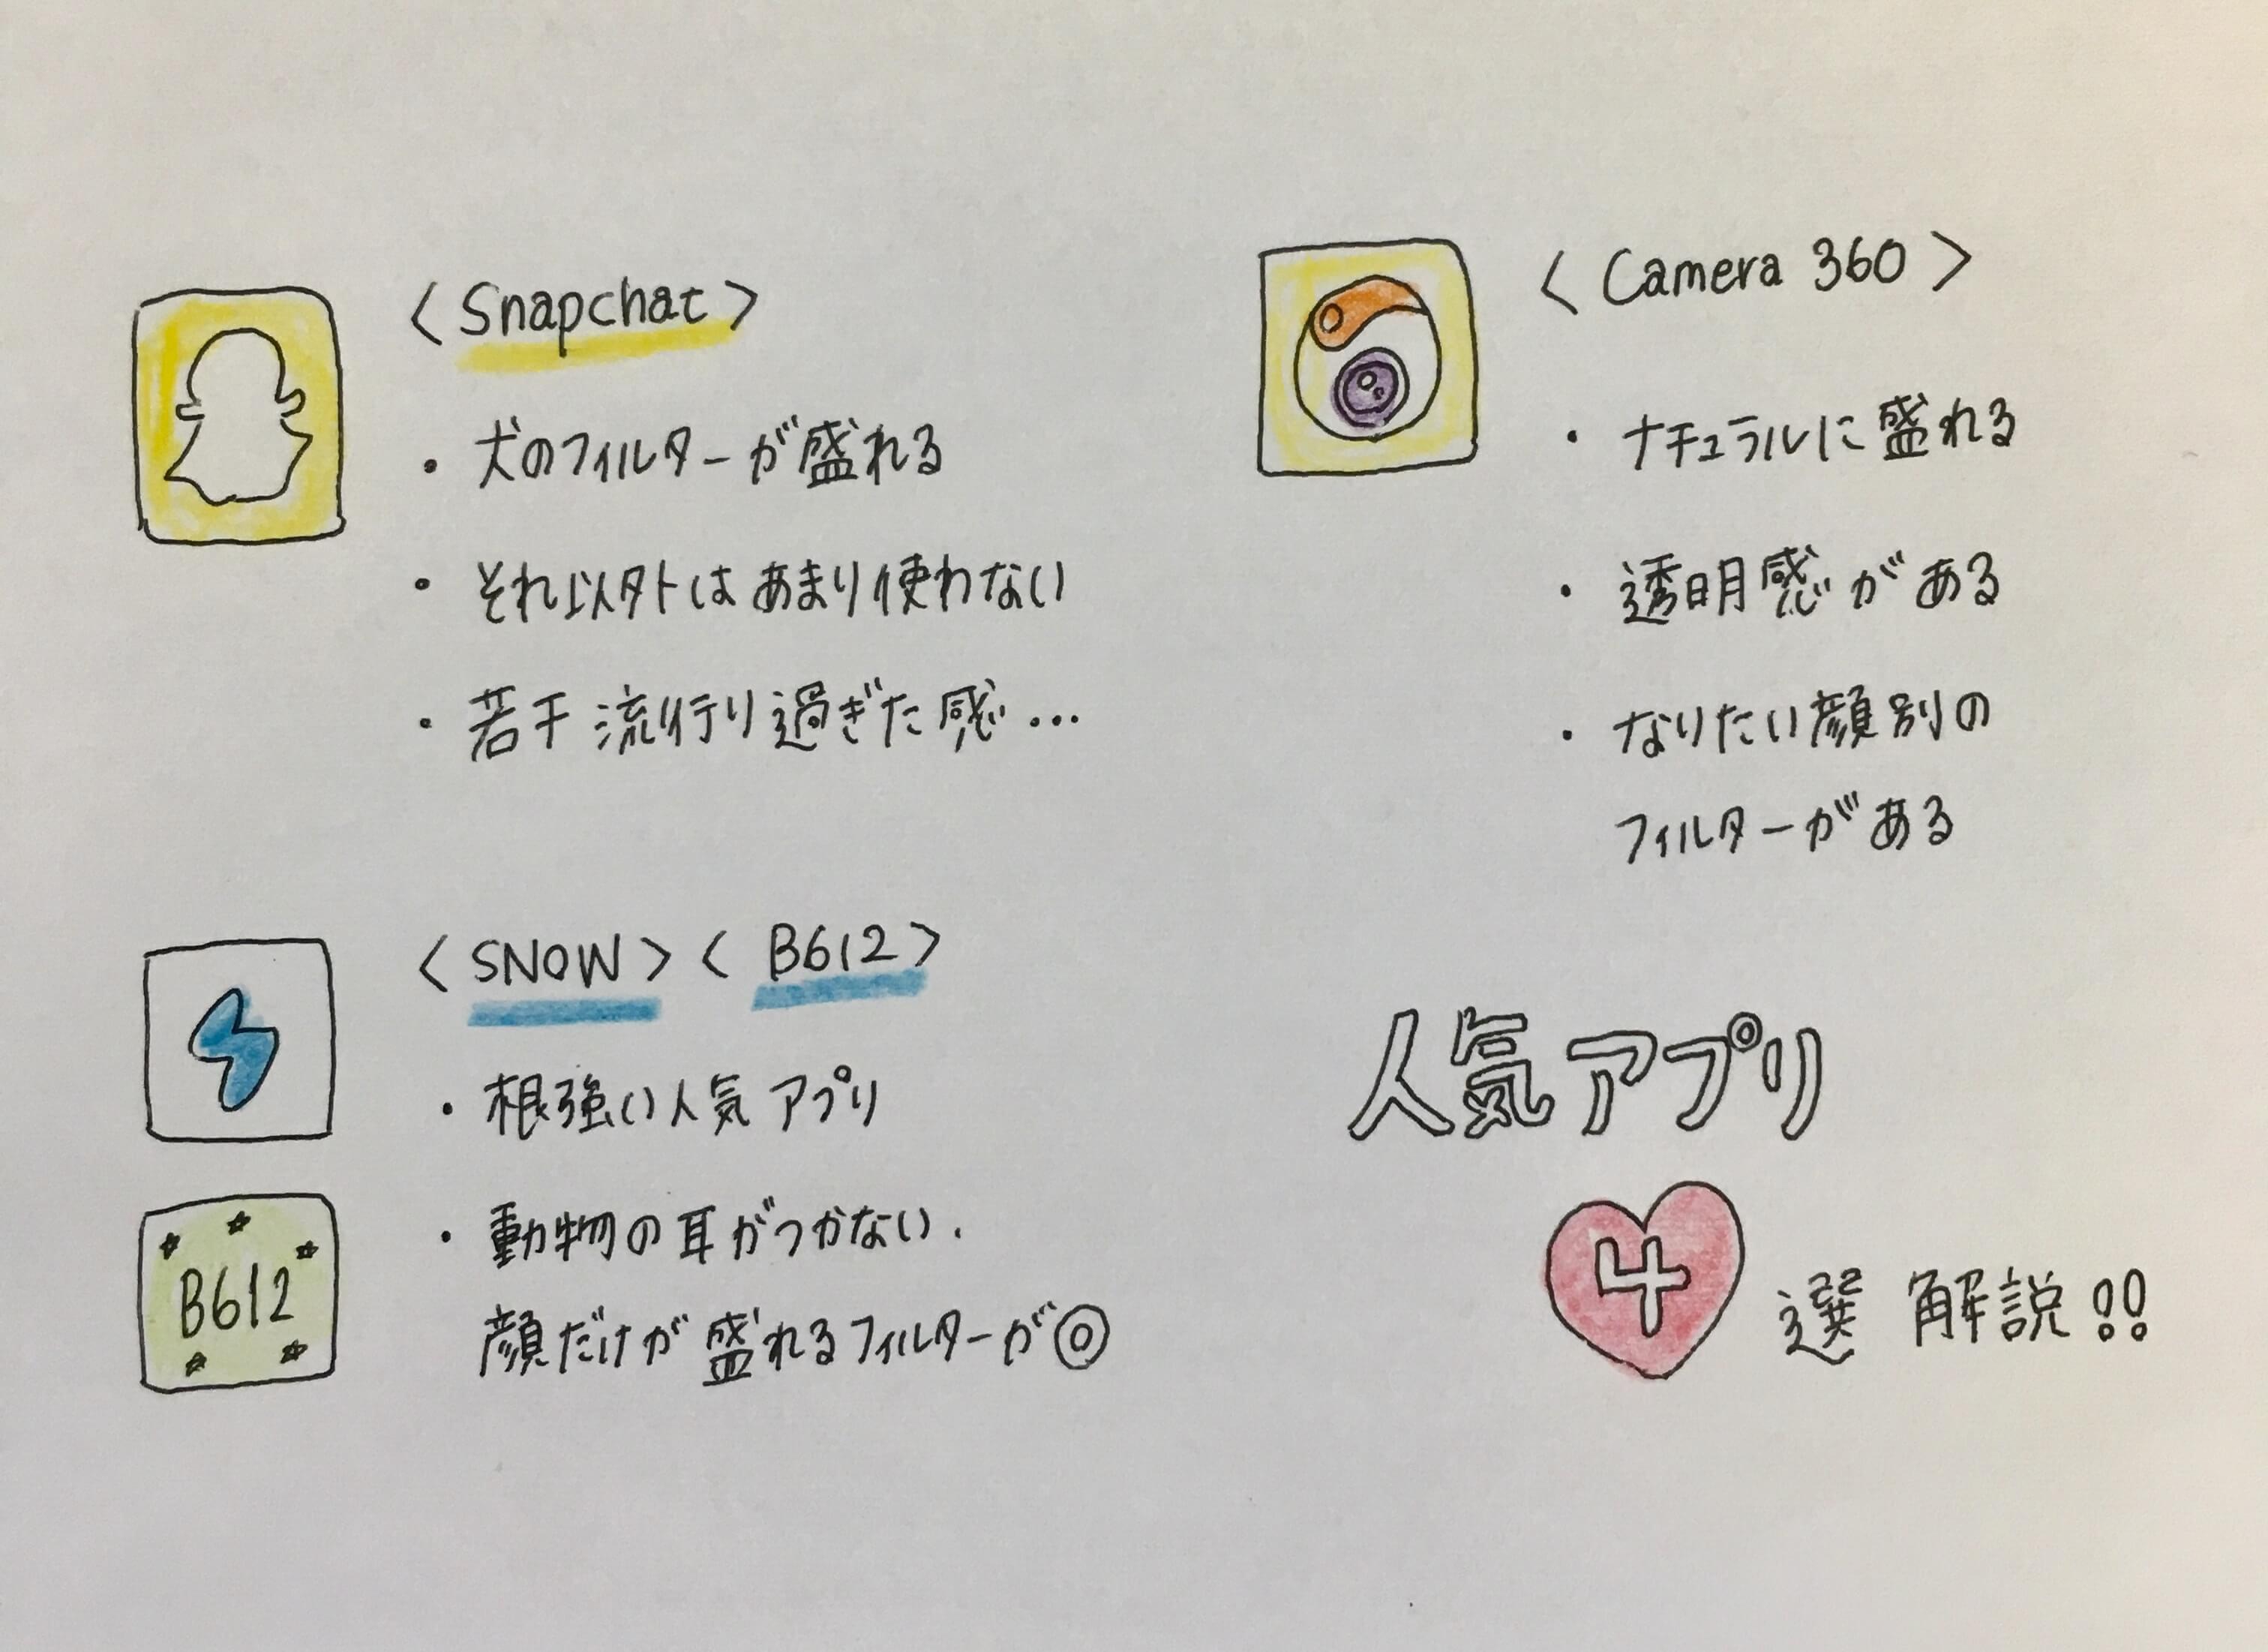 < Snapchat >
・犬のフィルターが盛れる
・それ以外はあまり使わない
・若干流行り過ぎた感…
< SNOW > < B612 >
・根強い人気アプリ
・動物の耳がつかない.
顔だけが盛れるフィルターが◎
B612
< Camera 360 >
・ナチュラルに盛れる
・透明感がある
・なりたい顔別の
フィルターがある
人気アプリ
4選 解説!!